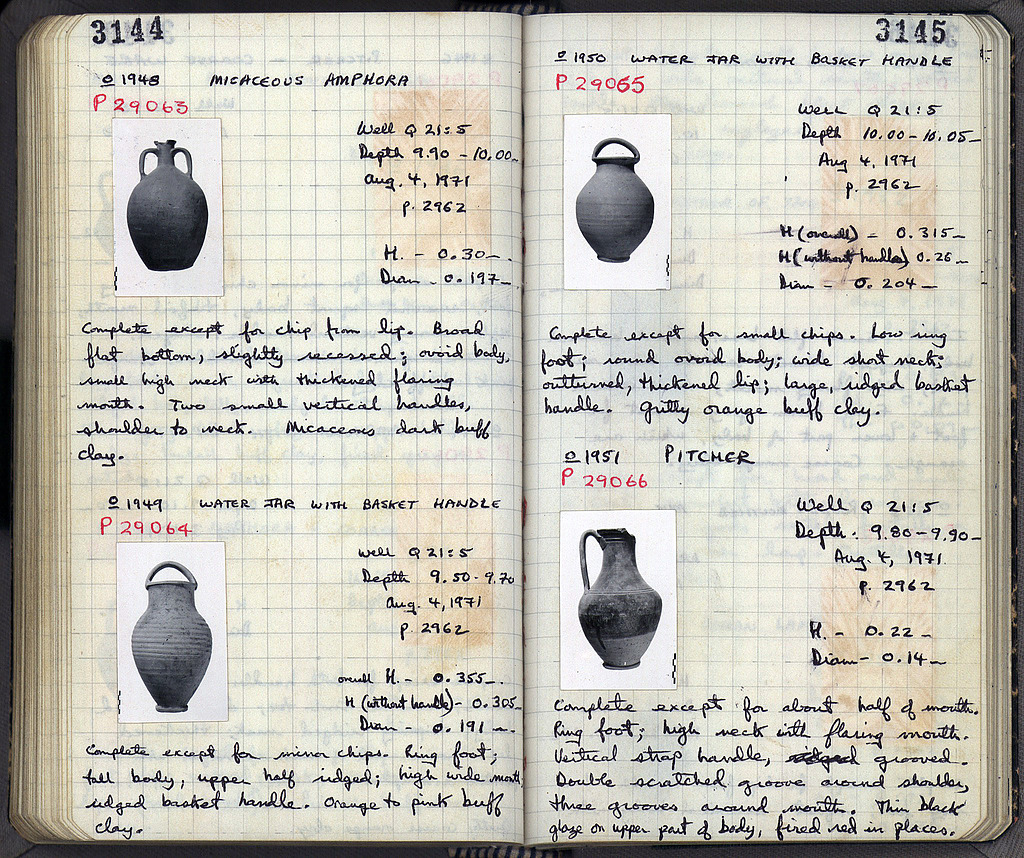 3144
o 1948 MICACEOUS AMPHORA
P 29063
Well Q 21:5
Depth 9.90 - 10.00m
Aug. 4, 1971
p. 2962
H. - 0.30m.
Diam - 0.197m.
Complete except for chip from lip. Broad
flat bottom, slightly recessed; ovoid body,
small high neck with thickened flaring
mouth. Two small vertical handles,
shoulder to neck. Micaceous dark buff
clay.
o 1949 WATER JAR WITH BASKET HANDLE
P 29064
Well Q 21:5
Depth 9.50 - 9.70
Aug. 4, 1971
p. 2962
overall H. - 0.355m.
H (without handle) - 0.305m
Diam - 0.191 m.
Complete except for minor chips. Ring foot;
tall body, upper half ridged; high wide mouth,
ridged basket handle. Orange to pink buff
clay.
3145
o 1950 WATER JAR WITH BASKET HANDLE
P 29065
Well Q 21:5
Depth 10.00 - 10.05m
Aug 4, 1971
p. 2962
H (overall) - 0.315m
H (without handle) 0.26m
Diam - 0.204m
Complete except for small chips. Low ring
foot; round ovoid body; wide short neck;
outturned, thickened lip; large, ridged basket
handle. Gritty orange buff clay.
o 1951 PITCHER
P 29066
Well Q 21:5
Depth. 9.80 - 9.90m
Aug 4, 1971
p. 2962
H. - 0.22m
Diam - 0.14m
Complete except for about half of mouth.
Ring foot; high neck with flaring mouth.
Vertical strap handle, ridged grooved.
Double scratched groove around shoulder,
three grooves around mouth. Thin black
glaze on upper part of body, fired red in places.